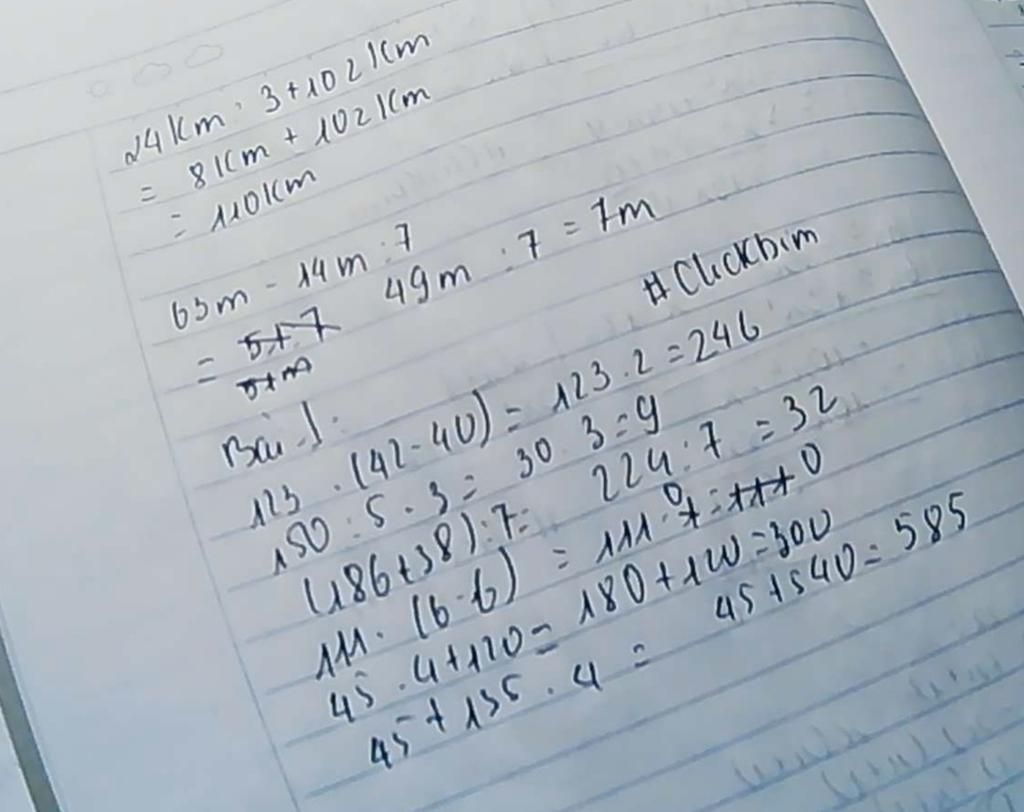 24km : 3 + 102km
= 8km + 102km
= 110km
63m - 14m : 7
= 49m : 7 = 7m
#Clickbim
Bài 1:
123 . (42 - 40) = 123 . 2 = 246
150 : 5 . 3 = 30 3 = 9
(186 + 38) : 7 = 224 : 7 = 32
111 . (6 - 6) = 111 . 0 = 0
45 . 4 + 120 = 180 + 120 = 300
45 + 135 . 4 = 45 + 540 = 585